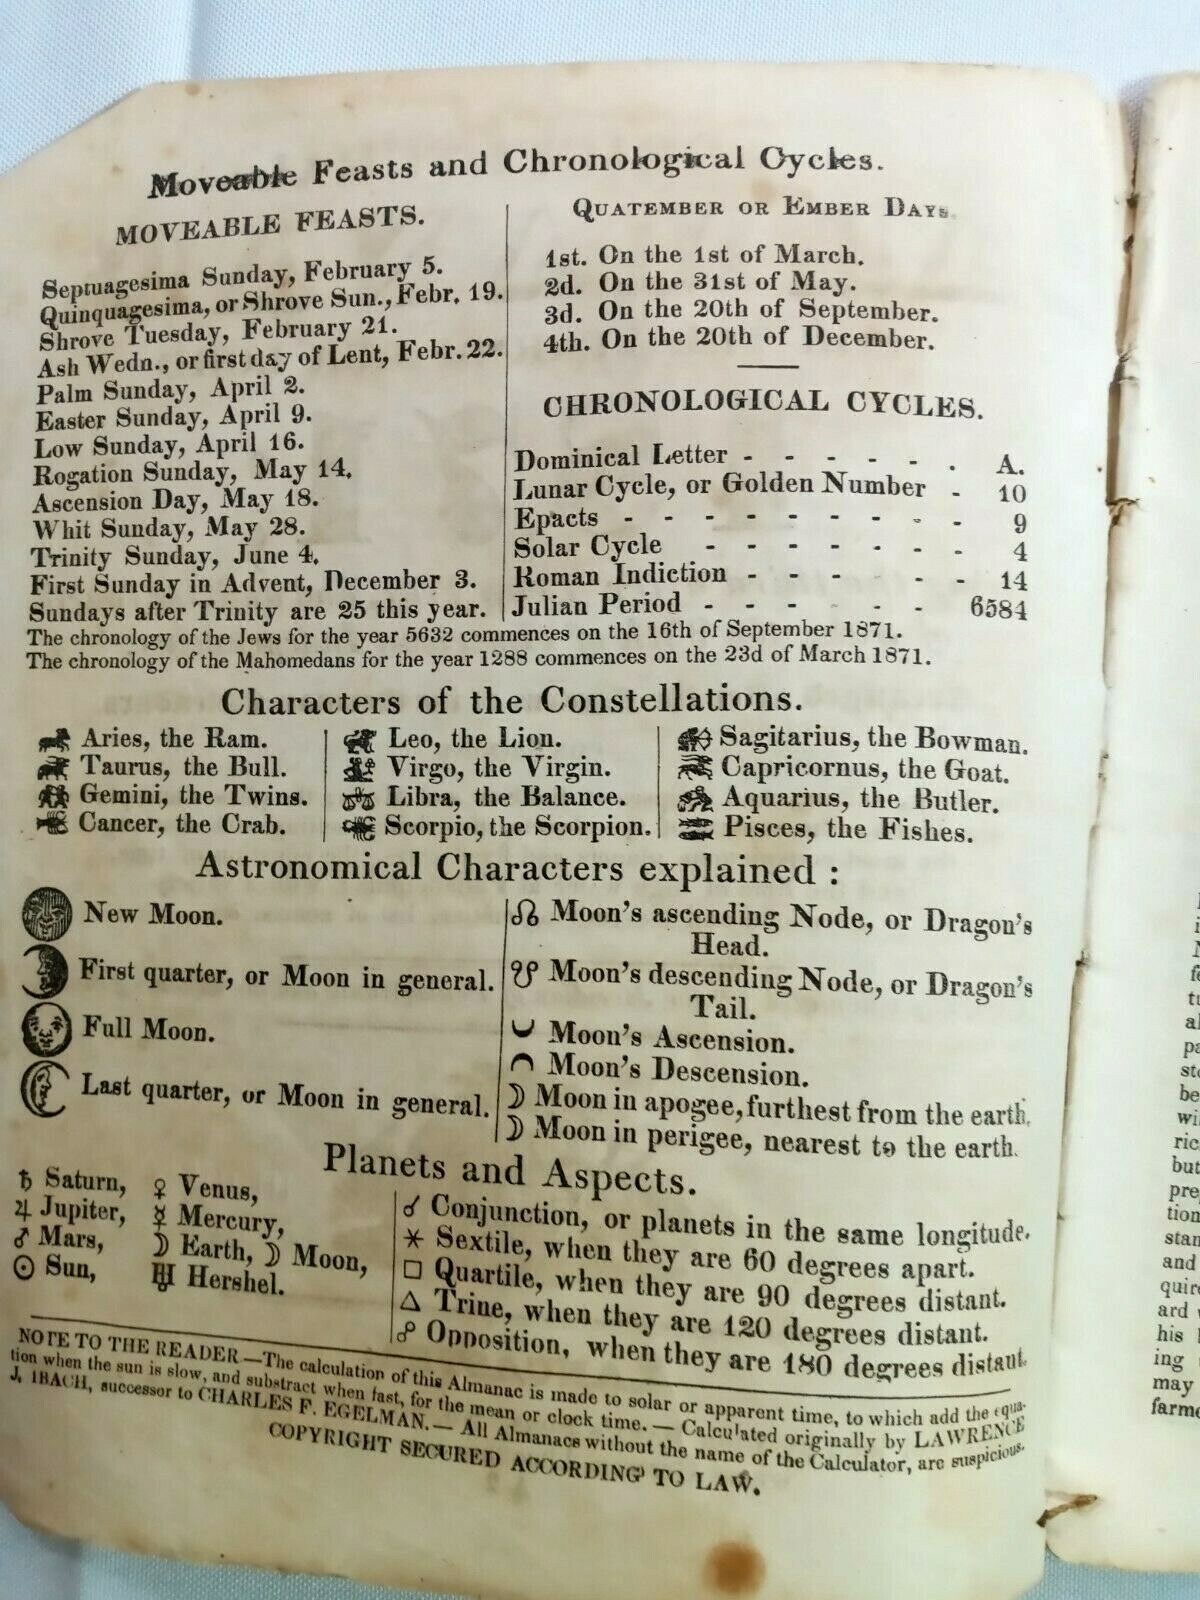 Moveable Feasts and Chronological Cycles.
MOVEABLE FEASTS.
Septuagesima Sunday, February 5.
Quinquagesima, or Shrove Sun., Febr. 19.
Shrove Tuesday, February 21.
Ash Wedn., or first day of Lent, Febr. 22.
Palm Sunday, April 2.
Easter Sunday, April 9.
Low Sunday, April 16.
Rogation Sunday, May 14.
Ascension Day, May 18.
Whit Sunday, May 28.
Trinity Sunday, June 4.
First Sunday in Advent, December 3.
Sundays after Trinity are 25 this year.
QUATEMBER OR EMBER DAYS.
1st. On the 1st of March.
2d. On the 31st of May.
3d. On the 20th of September.
4th. On the 20th of December.
CHRONOLOGICAL CYCLES.
Dominical Letter - - - - - . A.
Lunar Cycle, or Golden Number - 10
Epacts - - - - - - - - - 9
Solar Cycle - - - - - - - 4
Roman Indiction - - - - - - 14
Julian Period - - - - - - 6584
The chronology of the Jews for the year 5632 commences on the 16th of September 1871.
The chronology of the Mahomedans for the year 1288 commences on the 23d of March 1871.
Characters of the Constellations.
Aries, the Ram.
Taurus, the Bull.
Gemini, the Twins.
Cancer, the Crab.
Leo, the Lion.
Virgo, the Virgin.
Libra, the Balance.
Scorpio, the Scorpion.
Sagitarius, the Bowman.
Capricornus, the Goat.
Aquarius, the Butler.
Pisces, the Fishes.
Astronomical Characters explained :
New Moon.
First quarter, or Moon in general.
Full Moon.
Last quarter, or Moon in general.
☊ Moon's ascending Node, or Dragon's
Head.
☋ Moon's descending Node, or Dragon's
Tail.
Moon's Ascension.
Moon's Descension.
☽ Moon in apogee, furthest from the earth.
☽ Moon in perigee, nearest to the earth.
Planets and Aspects.
♄ Saturn,
♃ Jupiter,
♂ Mars,
☉ Sun,
♀ Venus,
☿ Mercury,
☽ Earth, ☽ Moon,
♅ Hershel.
☌ Conjunction, or planets in the same longitude.
⚹ Sextile, when they are 60 degrees apart.
□ Quartile, when they are 90 degrees distant.
△ Trine, when they are 120 degrees distant.
☍ Opposition, when they are 180 degrees distant.
NOTE TO THE READER.—The calculation of this Almanac is made to solar or apparent time, to which add the equa-
tion when the sun is slow, and substract when fast, for the mean or clock time. — Calculated originally by LAWRENCE
J. IBACH, successor to CHARLES F. EGELMAN.— All Almanacs without the name of the Calculator, are suspicious.
COPYRIGHT SECURED ACCORDING TO LAW.
be
ric
but
pre
tion
stan
and
quire
ard
his
ing
may
farme